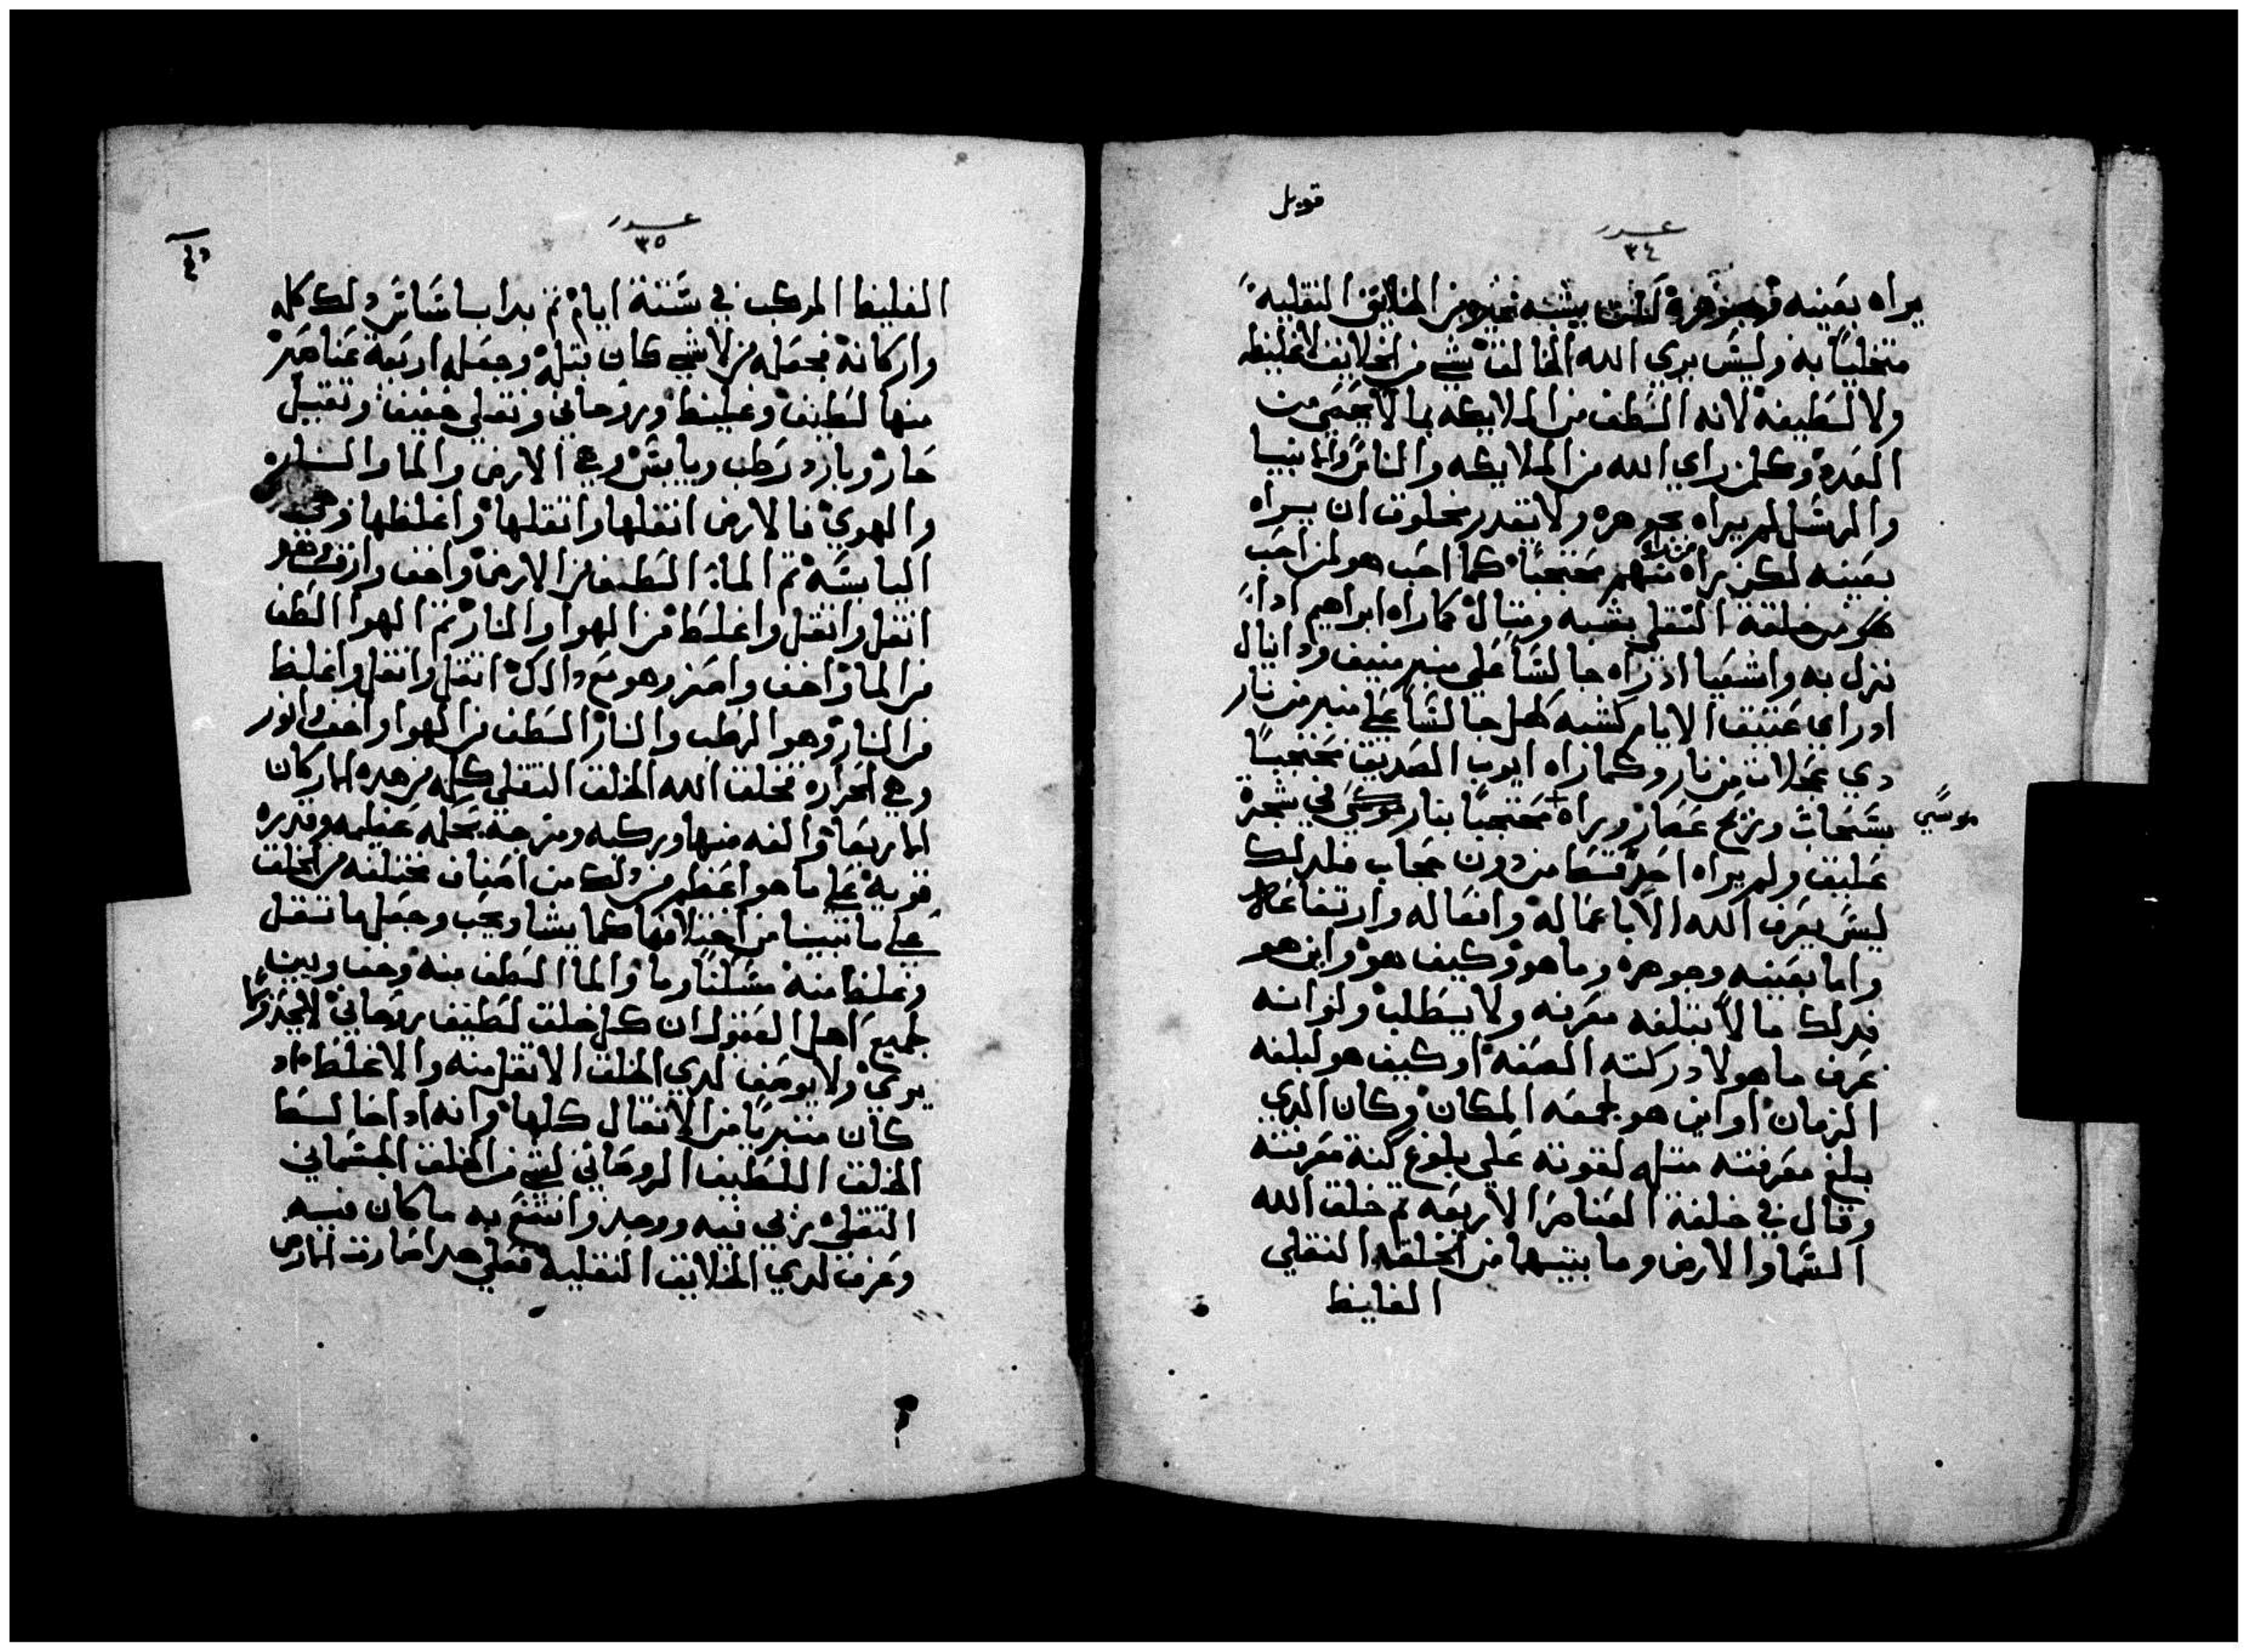 قوبل
عدد
٣٤
يراه بعينه وجوهره لكن بشبه غيره من الخلايق التقليه
متخليًا به وليس يري الله الخالق شي من الخلايق لا غليظه
ولا لطيفه لانه الطف من الملايكه بما لا يحصى من
العدد وكلمن راي الله من الملايكه والناس والانبيا
والرسل لم يراه بجوهره ولا يقدر مخلوق ان يراه
بعينه لكن يراه منهم محتجبًا كما احب هو لمن احب
من خلقة التقلي بشبه ومتال كما راه ابراهيم اداً
نزل به واشعيا اد راه جالسًا علي منبر منيف ودانيال
اد راي عتيق الايام كشبه كهل جالسًا علي منبر من نار
دي عجلات من نار وكما راه ايوب الصديق محتجبًا
بسحاب وريح عصار ويراه محتجبًا بنار موسي في شجرة
موسي
عليق ولم يراه احد قط من دون حجاب فلدلك
ليس يعرف الله الا باعماله وافعاله وارتفاعها
واما بعينه وجوهره وما هو وكيف هو واين هو
فدلك ما لا تبلغه معرفه ولا يسطلب ولو انه
عرف ما هو لادركته الصفه او كيف هو لبلغه
الزمان او اين هو لجمعه المكان وكان الدي
بلغ معرفته متله لقوته علي بلوغ كنة معرفته
وقال في خلقة العناصر الاربعه تم خلق الله
السما والارض وما بينهما من الخلقه التقلي
الغليظ
عدد
٣٥
الغليظ المركب في ستة ايام تم بدا باساس دلك كله
واركانه فجعله من لاشي كان قبله وجعله اربعة عناصر
منها لطيف وغليظ وروحاني وتقلي خفيف وتقيل
حار وبارد رطب ويابس وهي الارض والما والنار
والهوي فالارض اتقلها واتقلها واغلظها وهي
اليابسه تم الما الطف من الارض واخف وارق وهو
اتقل واتقل واغلظ من الهوا والنار تم الهوا الطف
من الما واخف وهو مع دالك اتقل واتقل واغلظ
من النار وهو الرطب والنار الطف من الهوا واخف وانور
وهي الحراره فخلق الله الخلق التقلي كله من هده الاركان
الاربعة والفه منها وركبه ومزجه بحكمه عظيمه وقدره
قويه علي ما هو اعظم من دلك من اصناف مختلفه من الخلق
علي ما تبينا من اختلافها كما يشا ويحب وجعل ما تقل
وغلظ منه مسكنًا وما والما الطف منه وخف وبين
لجميع اهل العقول ان كل خلق لطيف روحاني لا يحد وكما
يري ولا يوصف لدي الخلق الاتقل منه والاغلظ اد
كان متبريًا من الاتقال كلها وانه ادا خالط
الخلق اللطيف الروحاني لشي من الخلق الجسماني
التقلي ري فيه ووجد وانتفع به ما كان فيه
وعرف لدي الخلايق التقليه فعلي هدا صارت الارض